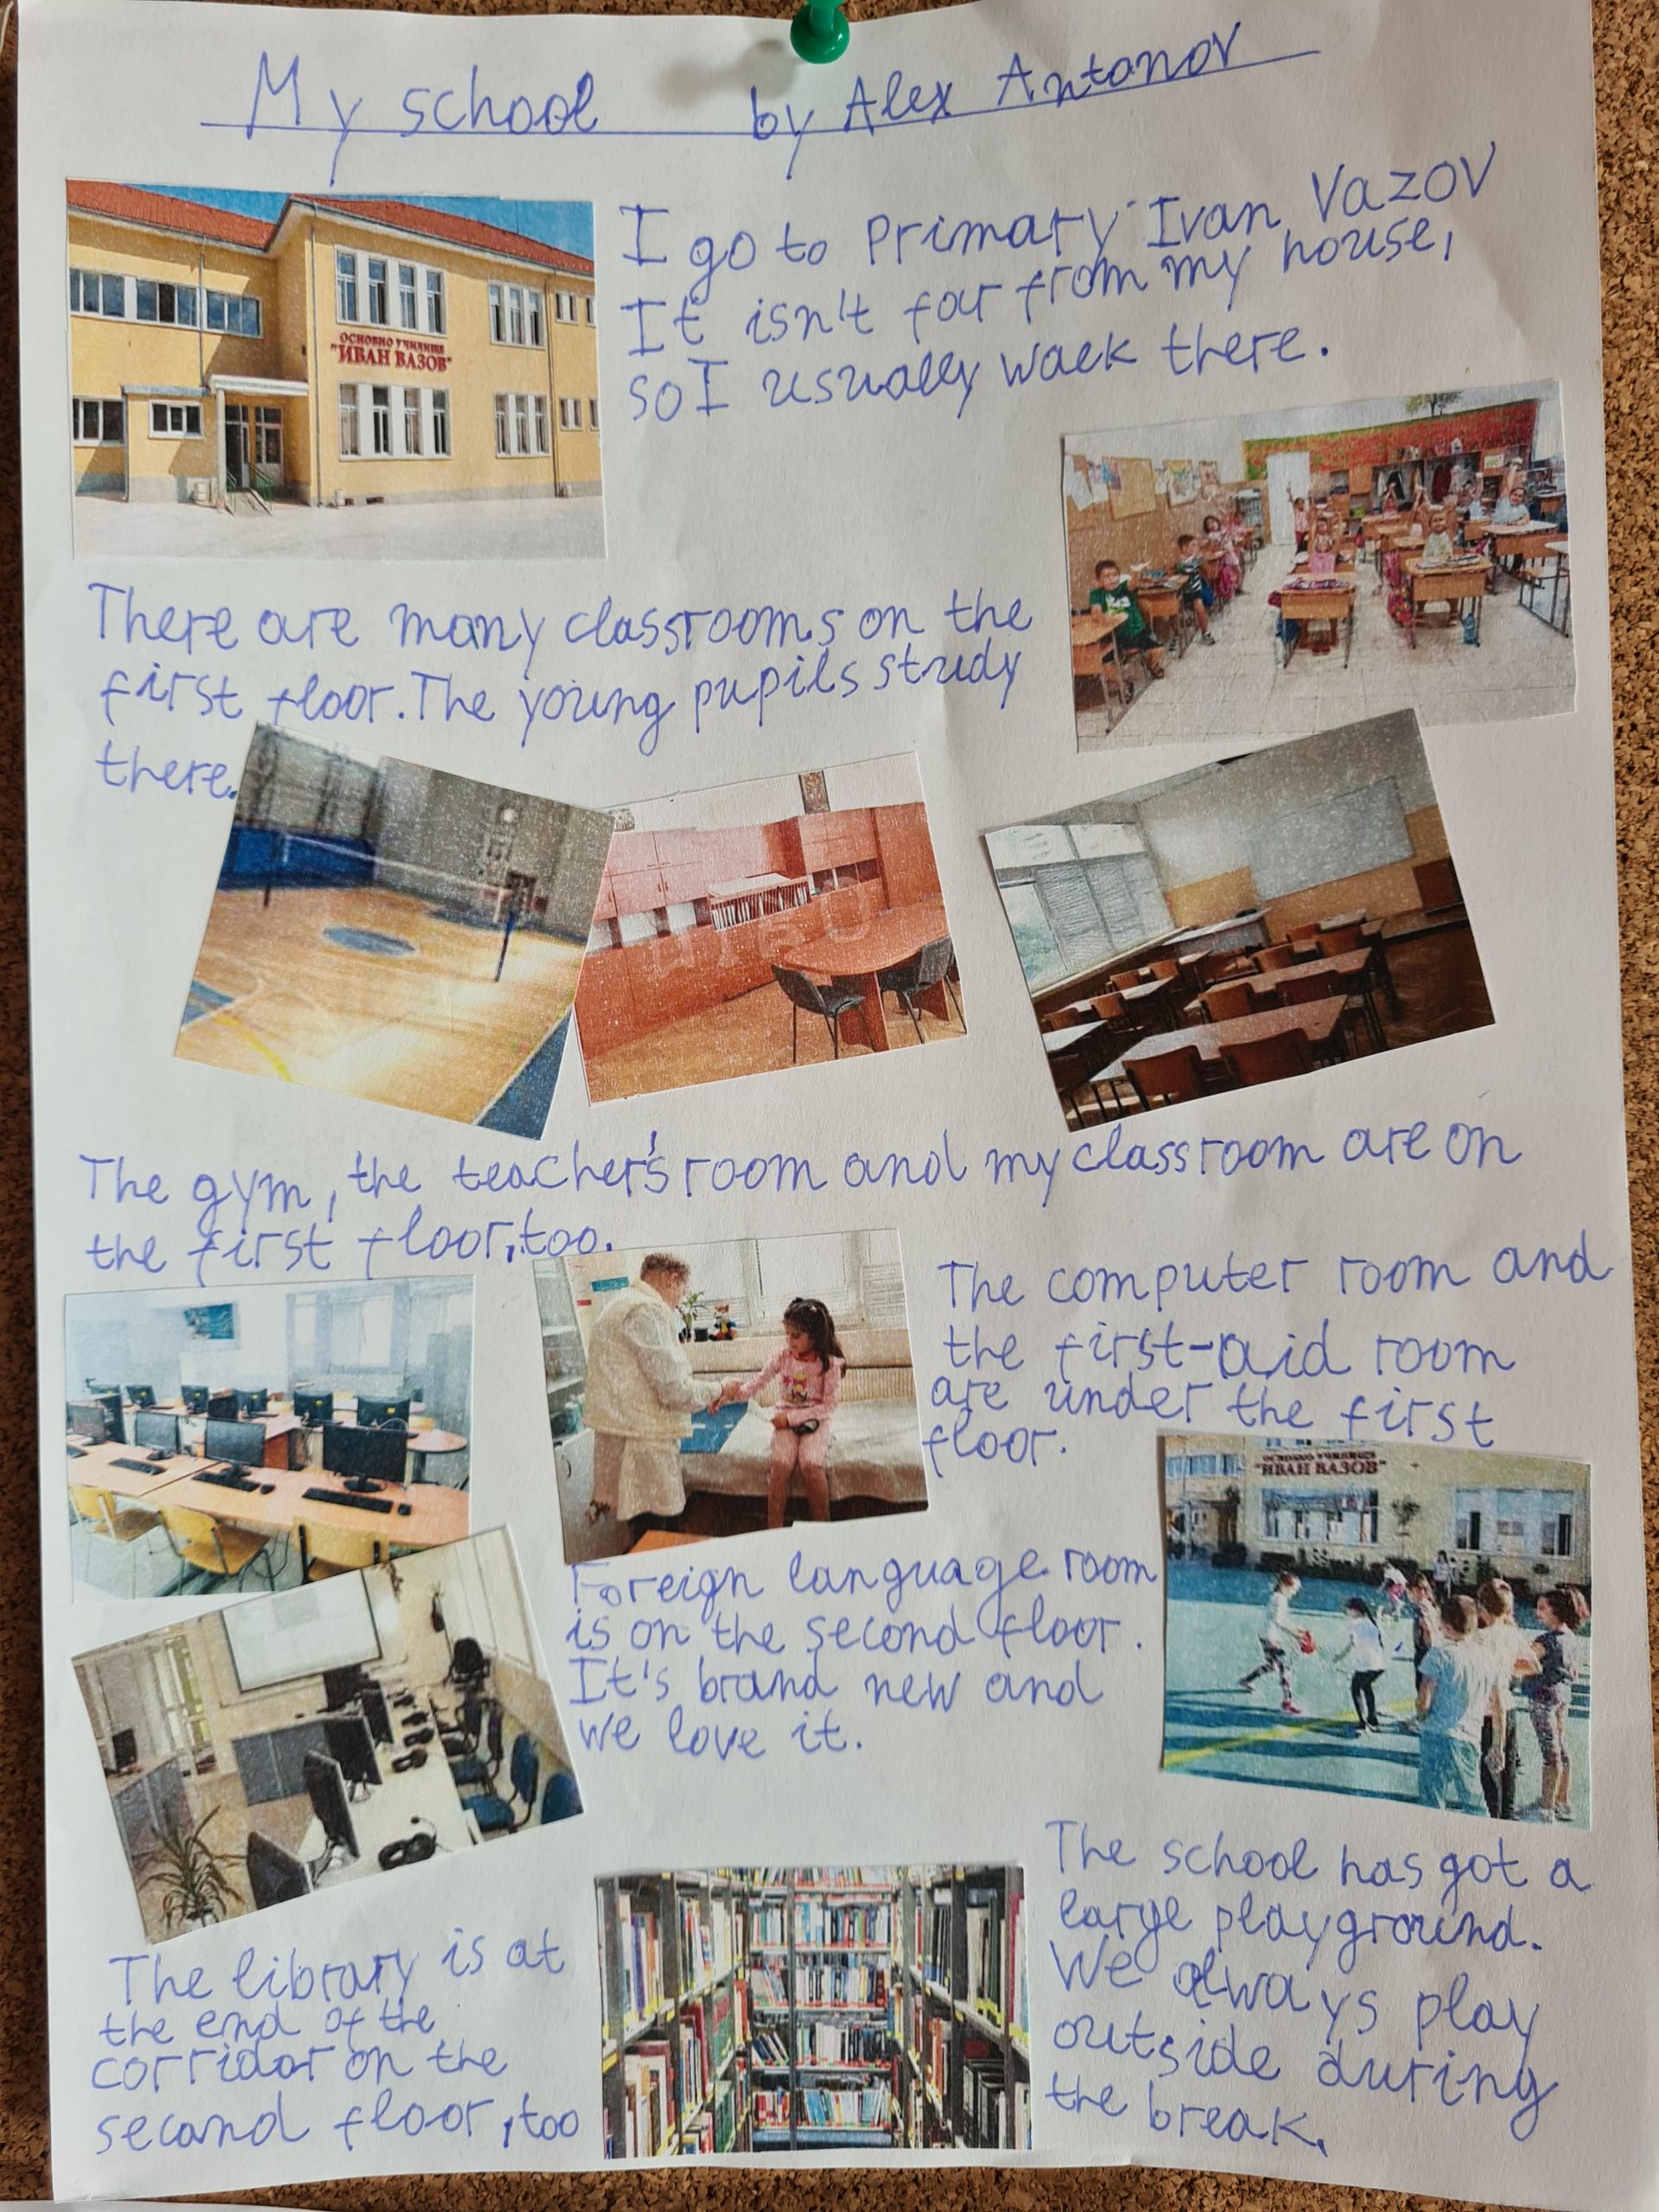 My school by Alex Antonov
I go to Primary Ivan Vazov
It isn't far from my house,
so I usually walk there.
ОСНОВНО УЧИЛИЩЕ
"ИВАН ВАЗОВ"
There are many classrooms on the
first floor. The young pupils study
there.
The gym, the teacher's room and my classroom are on
the first floor, too.
The computer room and
the first-aid room
are under the first
floor.
ОСНОВНО УЧИЛИЩЕ
"ИВАН ВАЗОВ"
Foreign language room
is on the second floor.
It's brand new and
we love it.
The school has got a
large playground.
We always play
outside during
the break.
The library is at
the end of the
corridor on the
second floor, too